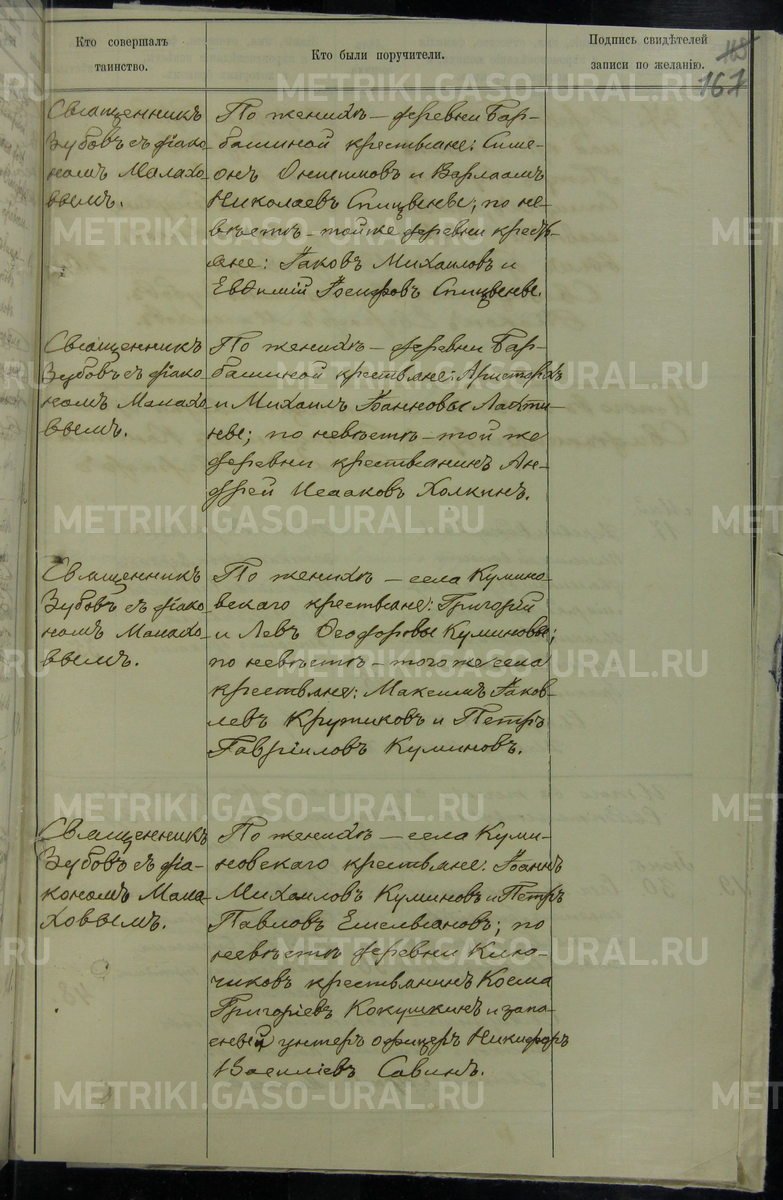 Кто совершалъ
таинство.
Кто были поручители.
Подпись свидѣтелей
записи по желанію.
167
Священникъ
Зубовъ съ діако-
номъ Малахо-
вымъ.
По женихѣ – деревни Бар-
башиной крестьяне: Симе-
онъ Онисимовъ и Варлаамъ
Николаевъ Спицыны; по не-
вѣстѣ – той же деревни кресть-
яне: Іаковъ Михаиловъ и
Евѳимій Іосифовъ Спицыны.
Священникъ
Зубовъ съ діако-
номъ Малахо-
вымъ.
По женихѣ – деревни Бар-
башиной крестьяне: Аристархъ
и Михаилъ Іоанновы Лахти-
ны; по невѣстѣ – той же
деревни крестьянинъ Ан-
дрей Исааковъ Холкинъ.
Священникъ
Зубовъ съ діако-
номъ Малахо-
вымъ.
По женихѣ – села Кумино-
вскаго крестьяне: Григорій
и Левъ Ѳеодоровы Куминовы;
по невѣстѣ – того же села
крестьяне: Максимъ Іаков-
левъ Кружиковъ и Петръ
Гавріиловъ Куминовъ.
Священникъ
Зубовъ съ діа-
кономъ Мала-
ховымъ.
По женихѣ – села Куми-
новскаго крестьяне: Іоаннъ
Михаиловъ Куминовъ и Петръ
Павловъ Емельяновъ; по
невѣстѣ деревни Клю-
чиковъ крестьянинъ Косма
Григоріевъ Кокушкинъ и запа-
сный унтеръ офицеръ Никифоръ
Василіевъ Савинъ.
METRIKI.GASO-URAL.RU